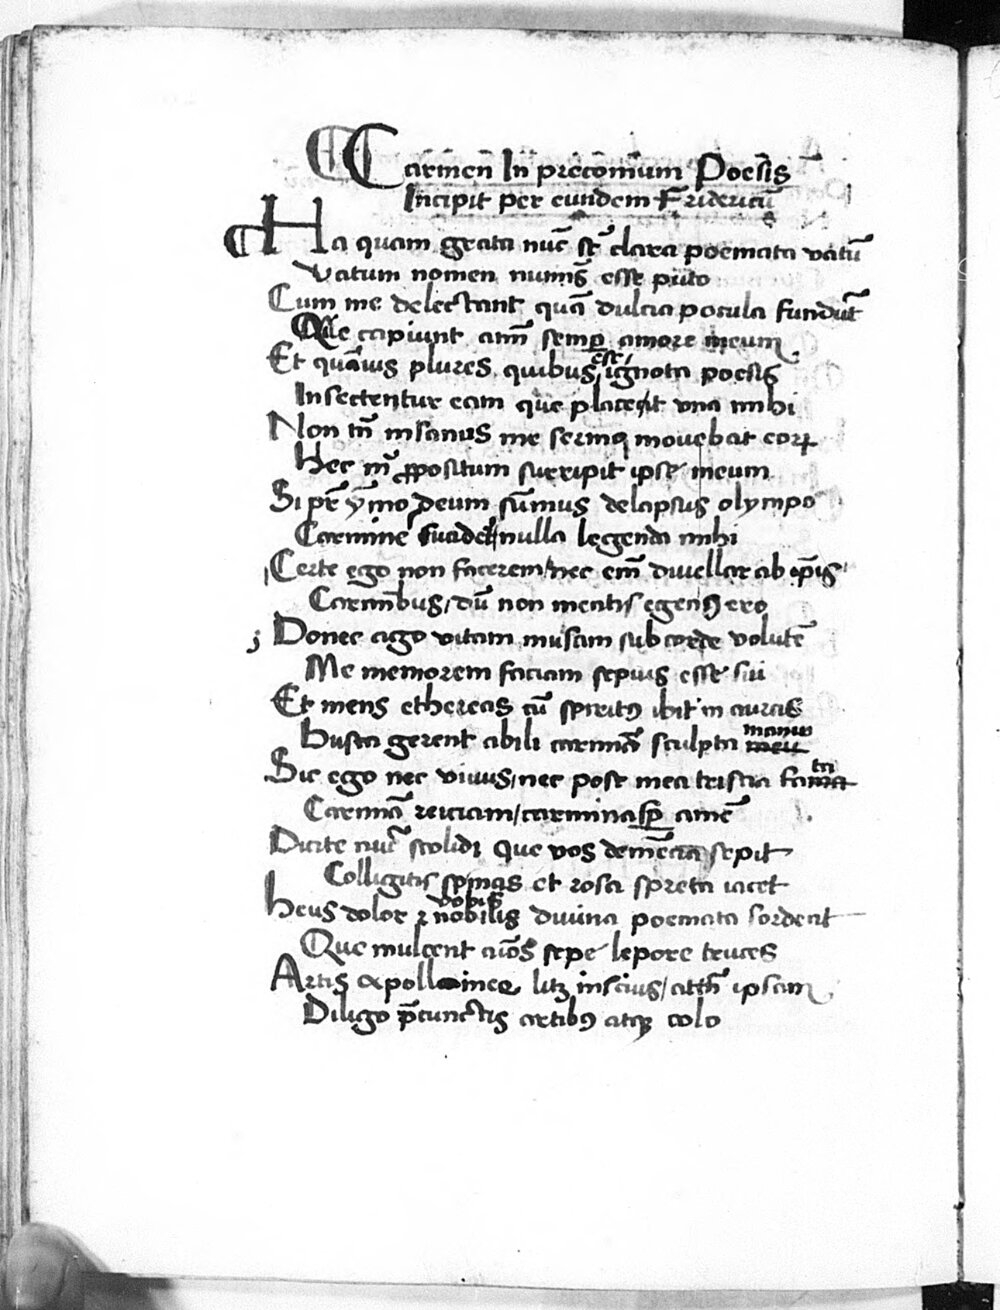 Carmen In preconium Poesis
Incipit per eundem Fridericū
Ha quam grata nūc st̄ clara poemata vatū
Vatum nomen numīs esse puto
Cum me delectant quā dulcia pocula fundūt
Que capiunt aīm semp amore meum
Et quāuis plures quibus est ignota poesis
Insectentur eam que placeat vna mihi
Non tn̄ insanus me sermo mouebat eoꝝ
Hec nī ꝓpositum surripit ipse meum
Si pr̄ ymo deum sūmus delapsus olympo
Carmine suadet nulla legenda mihi
Certe ego non facerem / nec em̄ diuellar ab ip̄is
Carmībus / dū non mentis egenꝰ ero
Donec ago vitam musam sub corde volutē
Me memorem faciam sepius esse sui
Et mens ethereas cū spiritꝰ ibit in auras
Busta gerent abili carmīa sculpta manu meu
Sic ego nec viuus / nec post mea tristia fata
Carmīa reiciam / carmina sp amē
Dicite nūc stolidi que vos demēcia sepit
Colligitis spinas et rosa spreta iacet
Heus dolor ꝛ vobis nobilis diuina poemata sordent
Que mulcent aīos sepe lepore truces
Artis apollinee litꝫ inscius / attn̄ ipsam
Diligo p̄cunctis artibꝰ atqꝫ colo